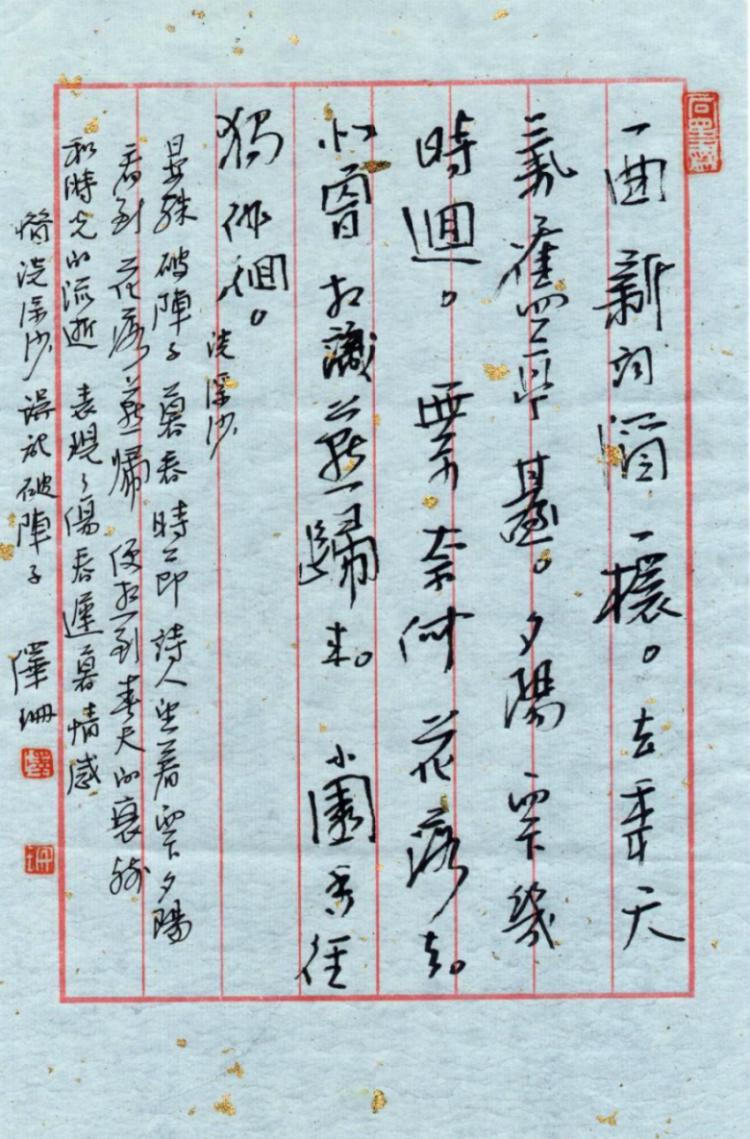 一曲新詞酒一杯。去年天
氣舊亭臺。夕陽西下幾
時迴。無可奈何花落去。
似曾相識燕歸來。小園香徑
獨徘徊。浣溪沙
晏殊 破陣子 暮春時節 詩人望着西下夕陽
看到花落燕歸 便想到春天的衰殘
和時光的流逝 表現了傷春遲暮情感
將浣溪沙誤於破陣子 澤珊